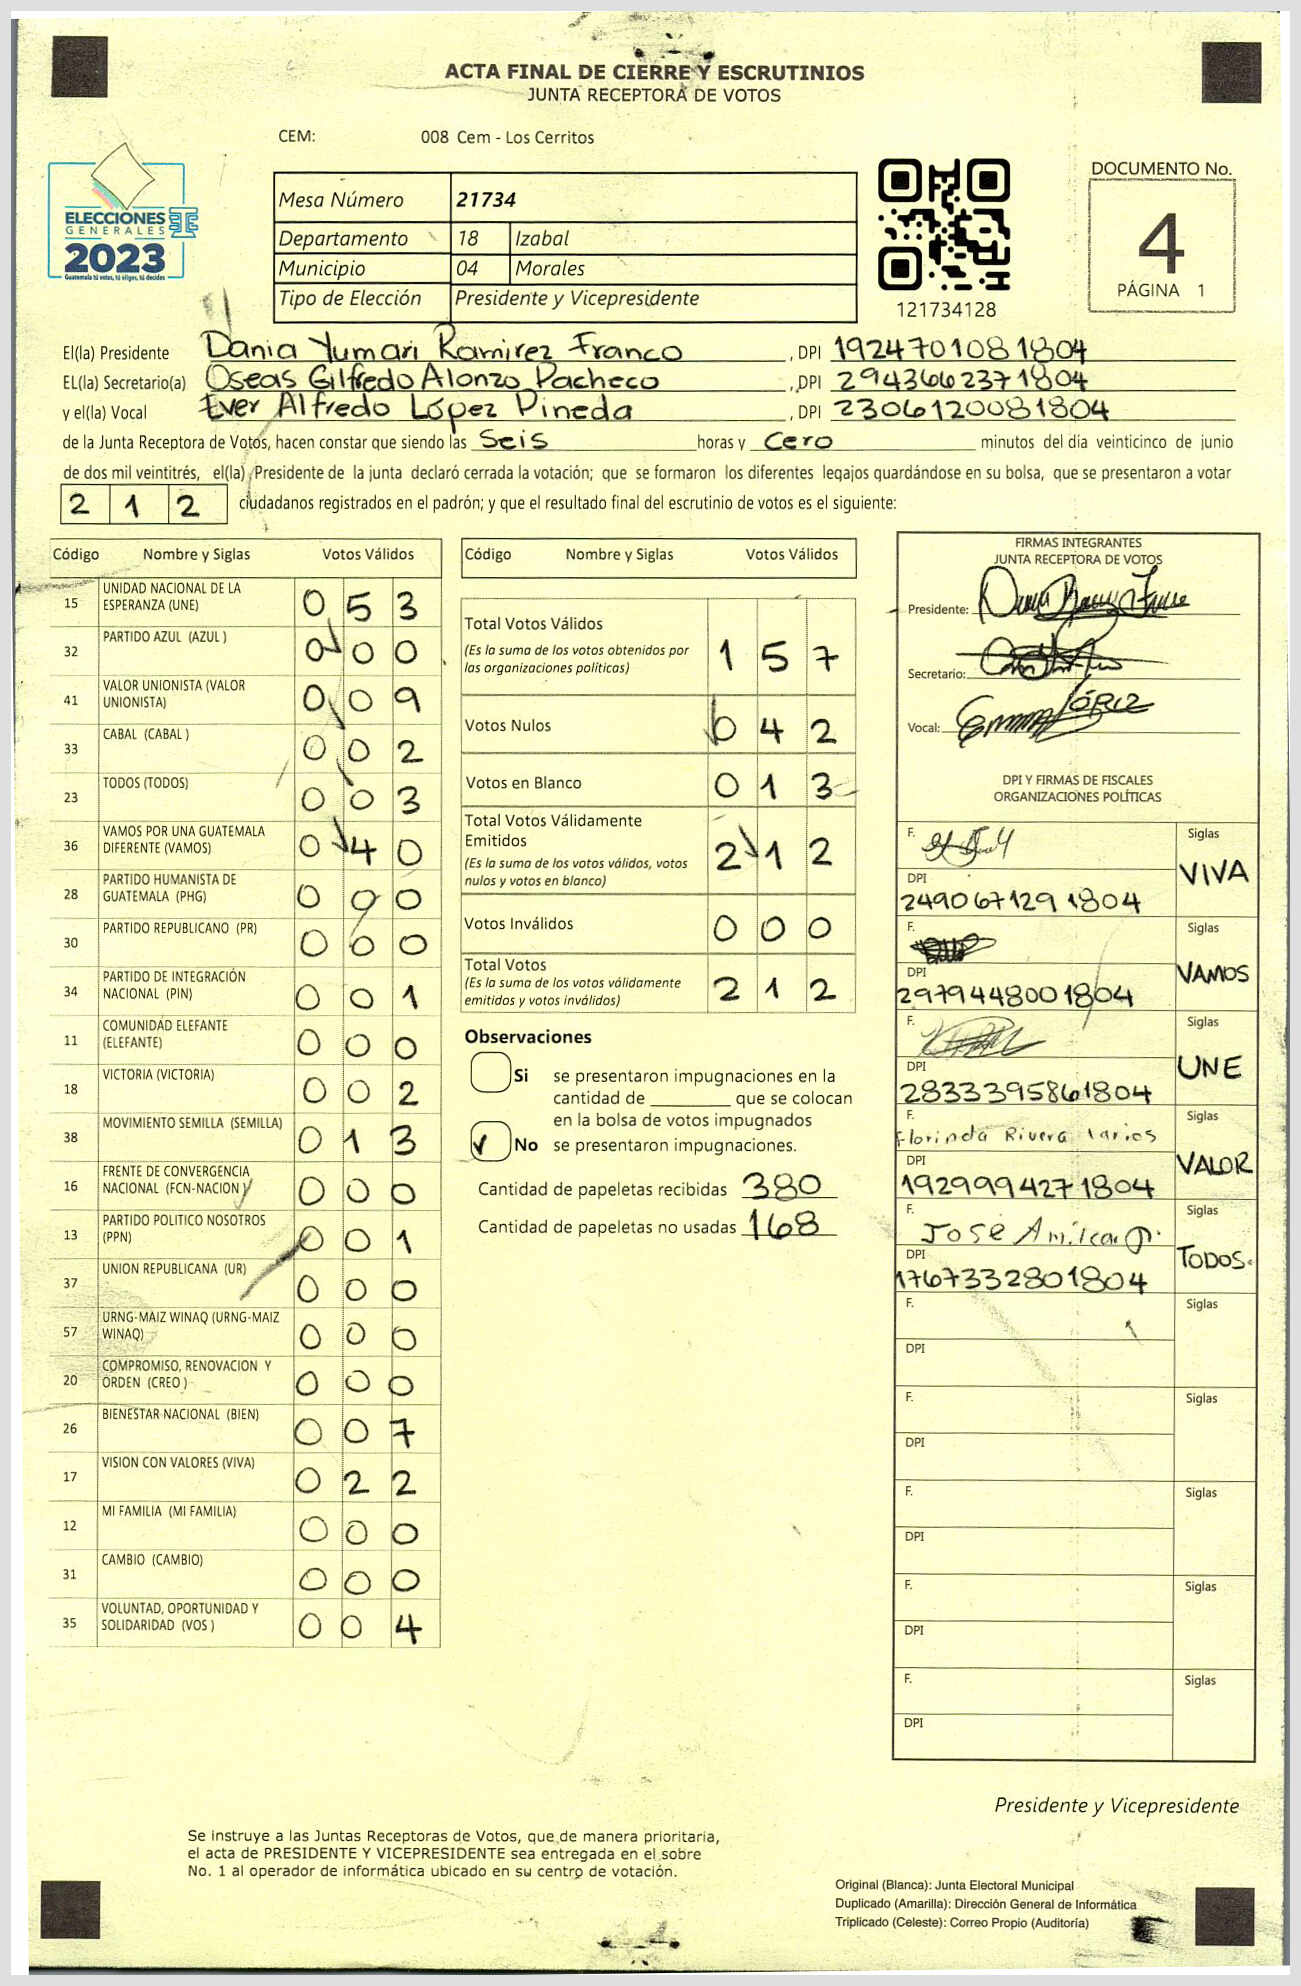 ACTA FINAL DE CIERRE Y ESCRUTINIOS
JUNTA RECEPTORA DE VOTOS
CEM: 008 Cem - Los Cerritos
ELECCIONES
GENERALES
2023
Guatemala tú votas, tú eliges, tú decides
Mesa Número 21734
Departamento 18 Izabal
Municipio 04 Morales
Tipo de Elección Presidente y Vicepresidente
121734128
DOCUMENTO No.
4
PÁGINA 1
El(la) Presidente Dania Yumari Ramirez Franco, DPI 1924701081804
EL(la) Secretario(a) Oseas Gilfredo Alonzo Pacheco, DPI 2943662371804
y el(la) Vocal Ever Alfredo López Pineda, DPI 2306120081804
de la Junta Receptora de Votos, hacen constar que siendo las Seis horas y Cero minutos del día veinticinco de junio
de dos mil veintitrés, el(la) Presidente de la junta declaró cerrada la votación; que se formaron los diferentes legajos guardándose en su bolsa, que se presentaron a votar
212 ciudadanos registrados en el padrón; y que el resultado final del escrutinio de votos es el siguiente:
Código Nombre y Siglas Votos Válidos
15 UNIDAD NACIONAL DE LA
ESPERANZA (UNE) 053
32 PARTIDO AZUL (AZUL ) 000
41 VALOR UNIONISTA (VALOR
UNIONISTA) 009
33 CABAL (CABAL ) 002
23 TODOS (TODOS) 003
36 VAMOS POR UNA GUATEMALA
DIFERENTE (VAMOS) 040
28 PARTIDO HUMANISTA DE
GUATEMALA (PHG) 000
30 PARTIDO REPUBLICANO (PR) 000
34 PARTIDO DE INTEGRACIÓN
NACIONAL (PIN) 001
11 COMUNIDAD ELEFANTE
(ELEFANTE) 000
18 VICTORIA (VICTORIA) 002
38 MOVIMIENTO SEMILLA (SEMILLA) 013
16 FRENTE DE CONVERGENCIA
NACIONAL (FCN-NACION) 000
13 PARTIDO POLITICO NOSOTROS
(PPN) 001
37 UNION REPUBLICANA (UR) 000
57 URNG-MAIZ WINAQ (URNG-MAIZ
WINAQ) 000
20 COMPROMISO, RENOVACION Y
ORDEN (CREO ) 000
26 BIENESTAR NACIONAL (BIEN) 007
17 VISION CON VALORES (VIVA) 022
12 MI FAMILIA (MI FAMILIA) 000
31 CAMBIO (CAMBIO) 000
35 VOLUNTAD, OPORTUNIDAD Y
SOLIDARIDAD (VOS ) 004
Código Nombre y Siglas Votos Válidos
Total Votos Válidos
(Es la suma de los votos obtenidos por
las organizaciones políticas) 157
Votos Nulos 042
Votos en Blanco 013
Total Votos Válidamente
Emitidos
(Es la suma de los votos válidos, votos
nulos y votos en blanco) 212
Votos Inválidos 000
Total Votos
(Es la suma de los votos válidamente
emitidos y votos inválidos) 212
Observaciones
Si se presentaron impugnaciones en la
cantidad de ________ que se colocan
en la bolsa de votos impugnados
No se presentaron impugnaciones.
Cantidad de papeletas recibidas 380
Cantidad de papeletas no usadas 168
FIRMAS INTEGRANTES
JUNTA RECEPTORA DE VOTOS
Presidente:
Secretario:
Vocal: López
DPI Y FIRMAS DE FISCALES
ORGANIZACIONES POLÍTICAS
F. Siglas
VIVA
DPI
2490671291804
F. Siglas
VAMOS
DPI
2979448001804
F. Siglas
UNE
DPI
2833395861804
F. Siglas
Florinda Rivera Larios
VALOR
DPI
1929994271804
F. Siglas
José Amilcar
TODOS.
DPI
1767332801804
F. Siglas
DPI
F. Siglas
DPI
F. Siglas
DPI
F. Siglas
DPI
F. Siglas
DPI
Presidente y Vicepresidente
Se instruye a las Juntas Receptoras de Votos, que de manera prioritaria,
el acta de PRESIDENTE Y VICEPRESIDENTE sea entregada en el sobre
No. 1 al operador de informática ubicado en su centro de votación.
Original (Blanca): Junta Electoral Municipal
Duplicado (Amarilla): Dirección General de Informática
Triplicado (Celeste): Correo Propio (Auditoría)